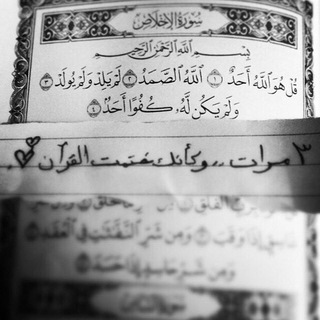 سُورَةُ الإِخْلَاصِ
بِسْمِ اللَّهِ الرَّحْمَٰنِ الرَّحِيمِ
قُلْ هُوَ اللَّهُ أَحَدٌ ١ اللَّهُ الصَّمَدُ ٢ لَمْ يَلِدْ وَلَمْ يُولَدْ ٣
وَلَمْ يَكُن لَّهُ كُفُوًا أَحَدٌ ٤
٣ مرات .. وكأنك ختمت القرآن
غَاسِقٍ إِذَا وَقَبَ ٣ وَمِن شَرِّ النَّفَّاثَاتِ فِي الْعُقَدِ ٤
وَمِن شَرِّ حَاسِدٍ إِذَا حَسَدَ ٥
سُورَةُ النَّاسِ